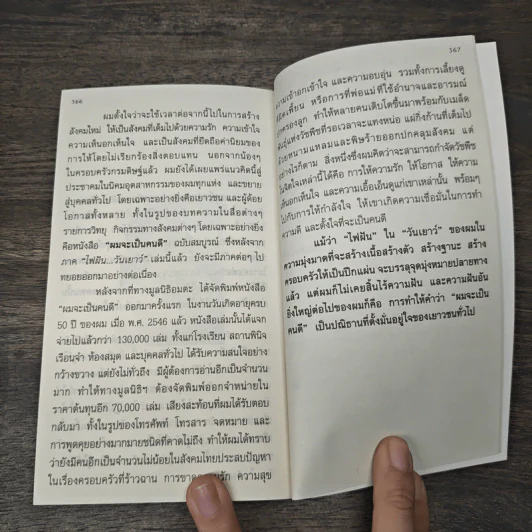 366
ผมตั้งใจว่าจะใช้เวลาต่อจากนี้ไปในการสร้าง
สังคมใหม่ ให้เป็นสังคมที่เต็มไปด้วยความรัก ความเข้าใจ
ความเห็นอกเห็นใจ และเป็นสังคมที่ยึดถือค่านิยมของ
การให้โดยไม่เรียกร้องสิ่งตอบแทน นอกจากน้องๆ
ในครอบครัวกรมดิษฐ์แล้ว ผมยังได้เผยแพร่แนวคิดนี้สู่
ประชาคมในนิคมอุตสาหกรรมของผมทุกแห่ง และขยาย
สู่บุคคลทั่วไป โดยเฉพาะอย่างยิ่งคือเยาวชน และผู้ด้อย
โอกาสทั้งหลาย ทั้งในรูปของบทความในสื่อต่างๆ
รายการวิทยุ กิจกรรมทางสังคมต่างๆ โดยเฉพาะอย่างยิ่ง
คือหนังสือ "ผมจะเป็นคนดี" ฉบับสมบูรณ์ ซึ่งหลังจาก
ภาค "ไฟฝัน...วันเยาว์" เล่มนี้แล้ว ยังจะมีภาคต่อๆ ไป
ทยอยออกมาอย่างต่อเนื่อง
หลังจากที่ทางมูลนิธิอมตะ ได้จัดพิมพ์หนังสือ
"ผมจะเป็นคนดี" ออกมาครั้งแรก ในงานวันเกิดอายุครบ
50 ปี ของผม เมื่อ พ.ศ. 2546 แล้ว หนังสือเล่มนั้นได้แจก
จ่ายไปแล้วกว่า 130,000 เล่ม ทั้งแก่โรงเรียน สถานพินิจ
เรือนจำ ห้องสมุด และบุคคลทั่วไป ได้รับความสนใจอย่าง
กว้างขวาง แต่ยังไม่ทั่วถึง มีผู้ต้องการอ่านอีกเป็นจำนวน
มาก ทำให้ทางมูลนิธิฯ ต้องจัดพิมพ์ออกจำหน่ายใน
ราคาต้นทุนอีก 70,000 เล่ม เสียงสะท้อนที่ผมได้รับตอบ
กลับมา ทั้งในรูปของโทรศัพท์ โทรสาร จดหมาย และ
การพูดคุยอย่างมากมายชนิดที่คาดไม่ถึง ทำให้ผมได้ทราบ
ว่ายังมีคนอีกเป็นจำนวนไม่น้อยในสังคมไทยประสบปัญหา
ในเรื่องครอบครัวที่ร้าวฉาน การขาด ความสุข
367
ความเข้าอกเข้าใจ และความอบอุ่น รวมทั้งการเลี้ยงดู
หรือการที่พ่อแม่ที่ใช้อำนาจและอารมณ์
ปกครองลูก ทำให้หลายคนเติบโตขึ้นมาพร้อมกับเมล็ด
พันธุ์แห่งวัชพืชที่รอเวลาจะแทงหน่อ แตกิ่งก้านที่เต็มไป
ด้วยหนามแหลมและพิษร้ายออกปกคลุมสังคม แต่
อย่างไรก็ตาม สิ่งหนึ่งซึ่งผมคิดว่าจะสามารถกำจัดวัชพืช
ในจิตใจเหล่านี้ได้คือ การให้ความรัก ให้โอกาส ให้ความ
เห็นอกเห็นใจ และความเอื้อเอ็นดูแก่เขาเหล่านั้น พร้อมๆ
ไปกับการให้กำลังใจ ให้เขาเกิดความเชื่อมั่นในการทำ
ความดี และตั้งใจที่จะเป็นคนดี
แม้ว่า "ไฟฝัน" ใน "วันเยาว์" ของผมใน
ความมุ่งมาดที่จะสร้างเนื้อสร้างตัว สร้างฐานะ สร้าง
ครอบครัวให้เป็นปึกแผ่น จะบรรลุจุดมุ่งหมายปลายทาง
แล้ว แต่ผมก็ไม่เคยสิ้นไร้ความฝัน และความฝันอัน
ยิ่งใหญ่ต่อไปของผมก็คือ การทำให้คำว่า "ผมจะเป็น
คนดี" เป็นปณิธานที่ตั้งมั่นอยู่ใจของเยาวชนทั่วไป